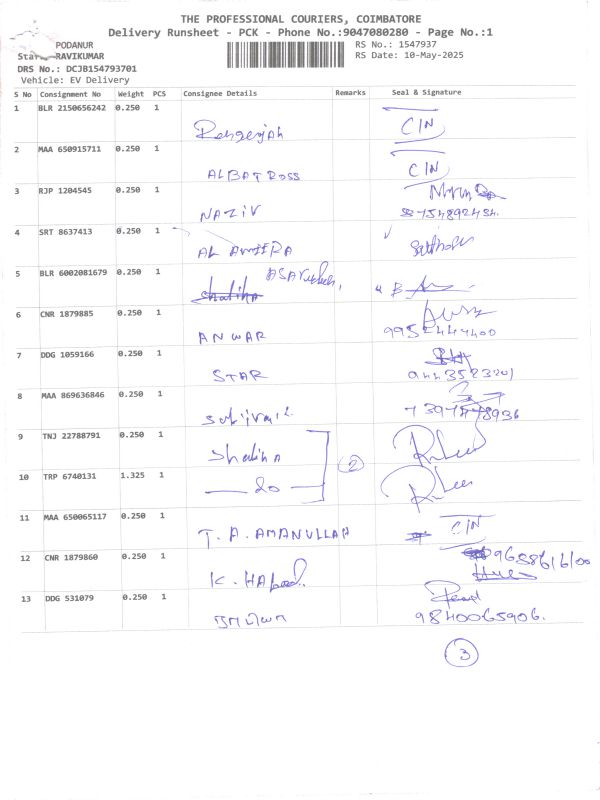 THE PROFESSIONAL COURIERS, COIMBATORE
Delivery Runsheet - PCK - Phone No.:9047080280 - Page No.:1
PODANUR
RAVIKUMAR
DRS No.: DCJB154793701
Vehicle: EV Delivery
RS No.: 1547937
RS Date: 10-May-2025
S No Consignment No Weight PCS Consignee Details Remarks Seal & Signature
1 BLR 2150656242 0.250 1
C/N
2 MAA 650915711 0.250 1
ALBATROSS C/N
3 RJP 1204545 0.250 1
NAZIV
4 SRT 8637413 0.250 1
AL AMEERA
5 BLR 6002081679 0.250 1
6 CNR 1879885 0.250 1
ANWAR 9952444400
7 DDG 1059166 0.250 1
STAR 9443523201
8 MAA 869636846 0.250 1
9 TNJ 22788791 0.250 1
Shaliha 2
10 TRP 6740131 1.325 1
do
11 MAA 650065117 0.250 1
T. A. AMANULLAH C/N
12 CNR 1879860 0.250 1
K. 9658616100
13 DDG 531079 0.250 1
9840065906.
3